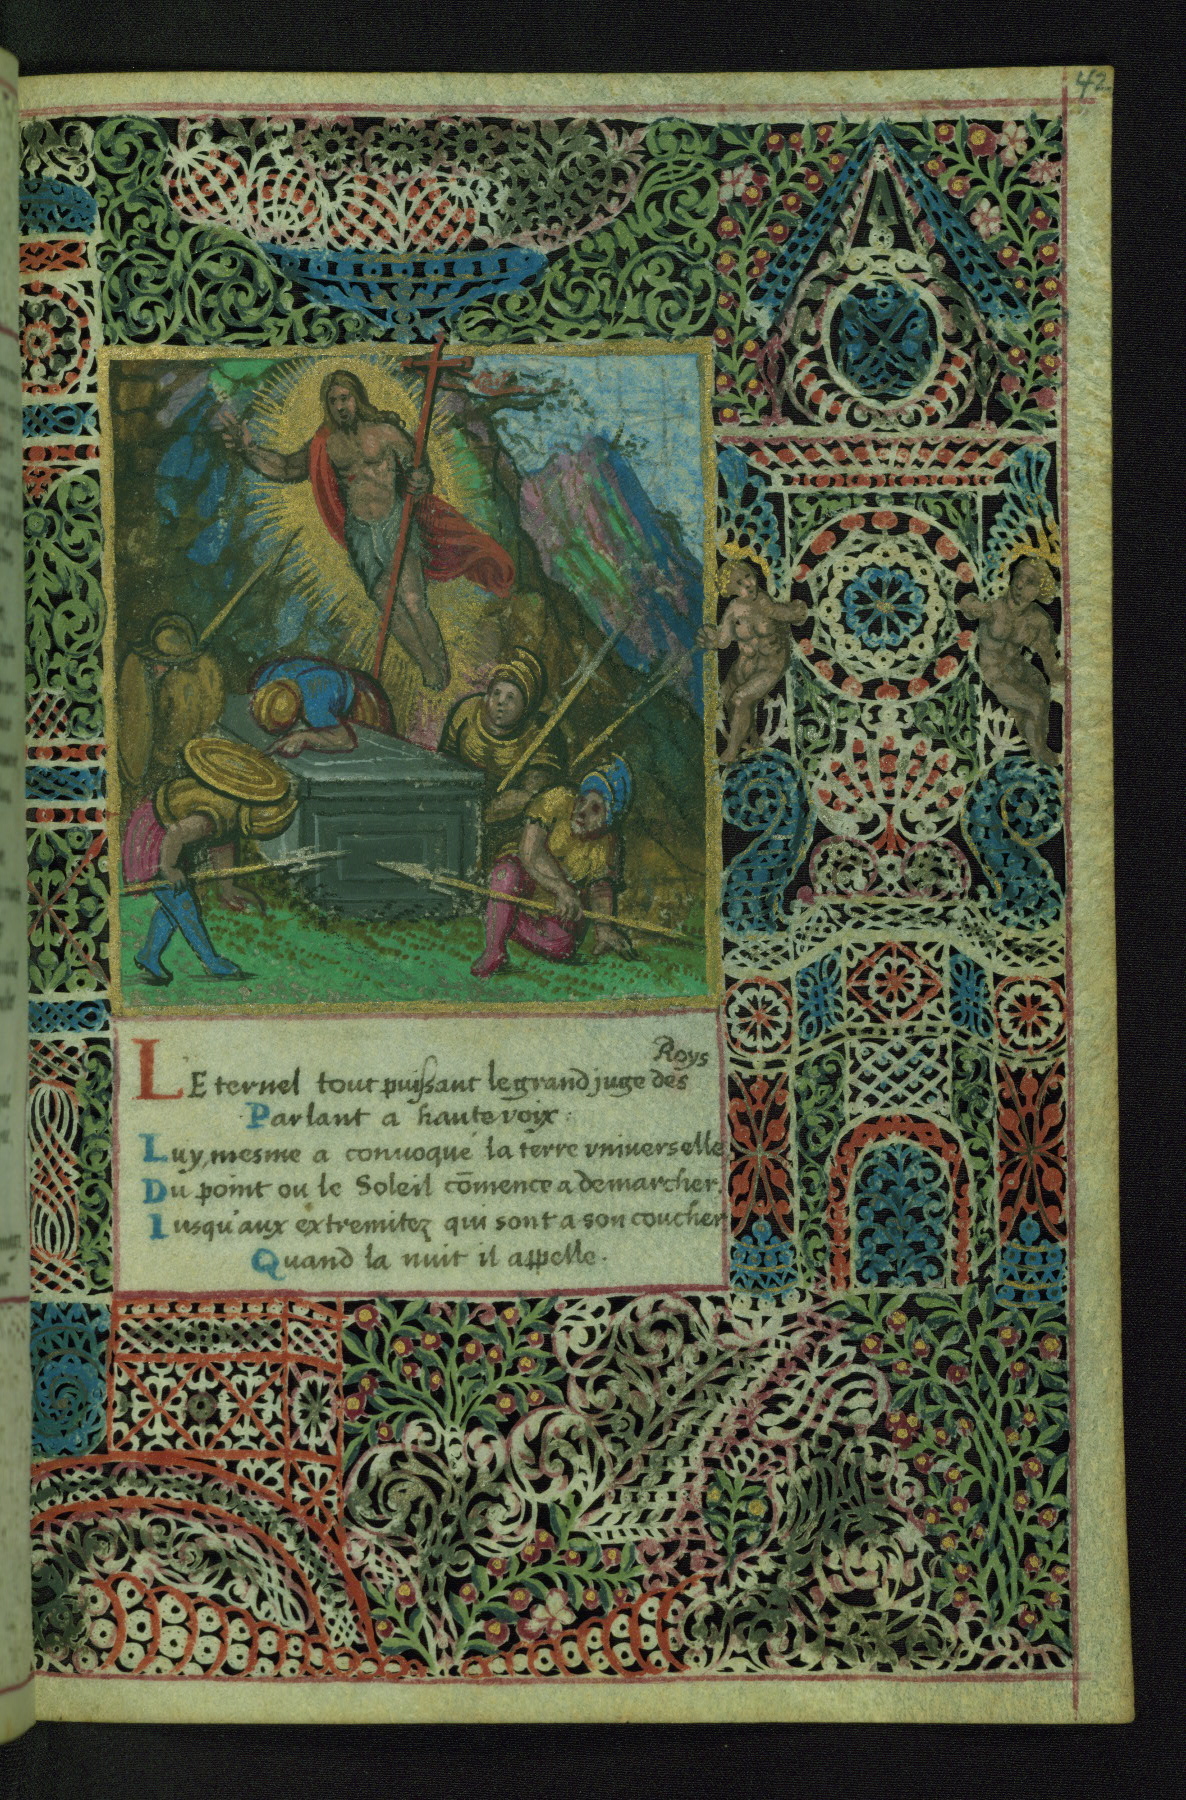 42
Roys
LEternel tout puissant le grand juge des
Parlant a haute voix.
Luy, mesme a conuoqué la terre vniverselle
Du point ou le Soleil cōmence a demarcher.
Iusqu'aux extremitez qui sont a son coucher
Quand la nuit il appelle.